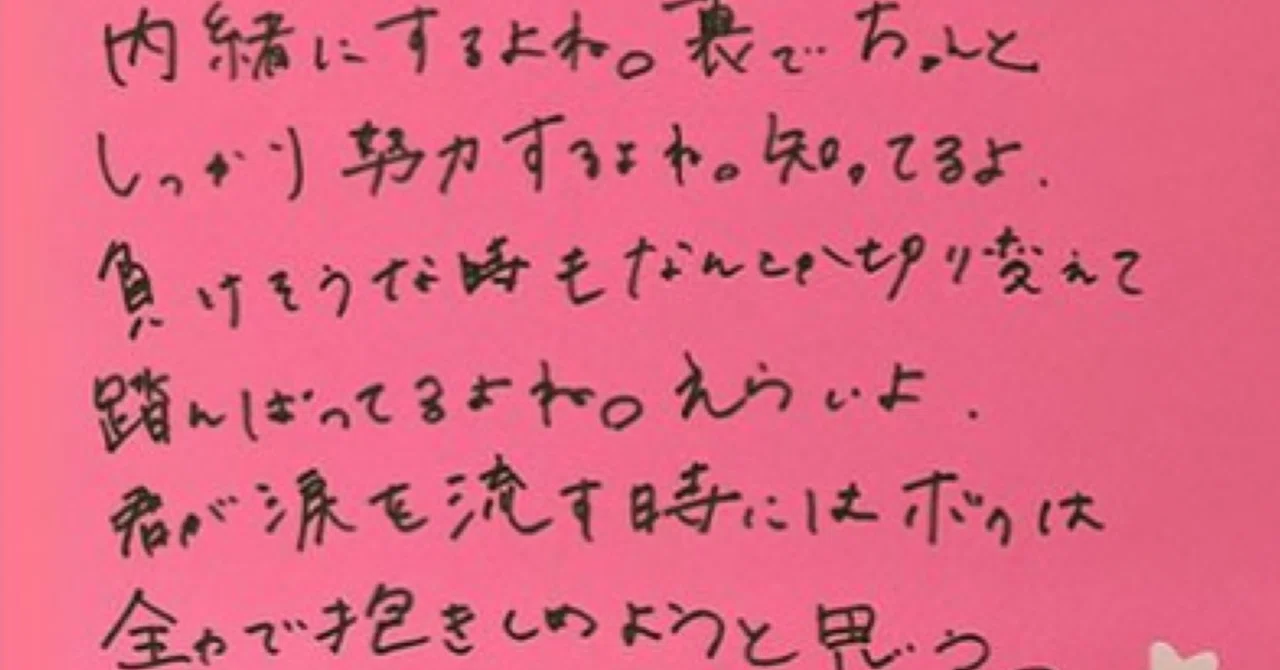 内緒にするよね。裏でちゃんと
しっかり努力するよね。知ってるよ.
負けそうな時もなんとか切り変えて
踏んばってるよね。えらいよ.
君が涙を流す時にはボクは
全力で抱きしめようと思う